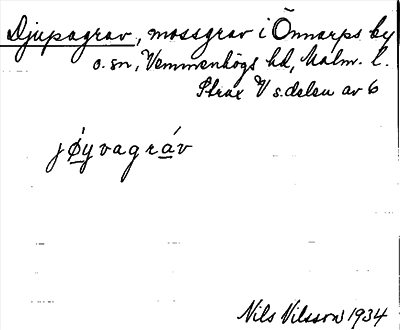 Djupagrav, mossgrav i Önnarps by
o. sn, Vemmenhögs hd, Malm. l.
Strax V s.delen av 6
jǿyvagráv
Nils Nilsson 1934